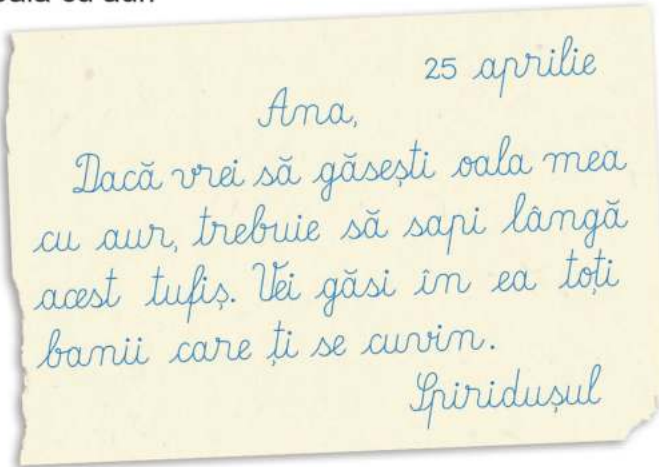 25 aprilie
Ana,
Dacă vrei să găsești oala mea
cu aur, trebuie să sapi lângă
acest tufiș. Vei găsi în ea toți
banii care ți se cuvin.
Spiridușul